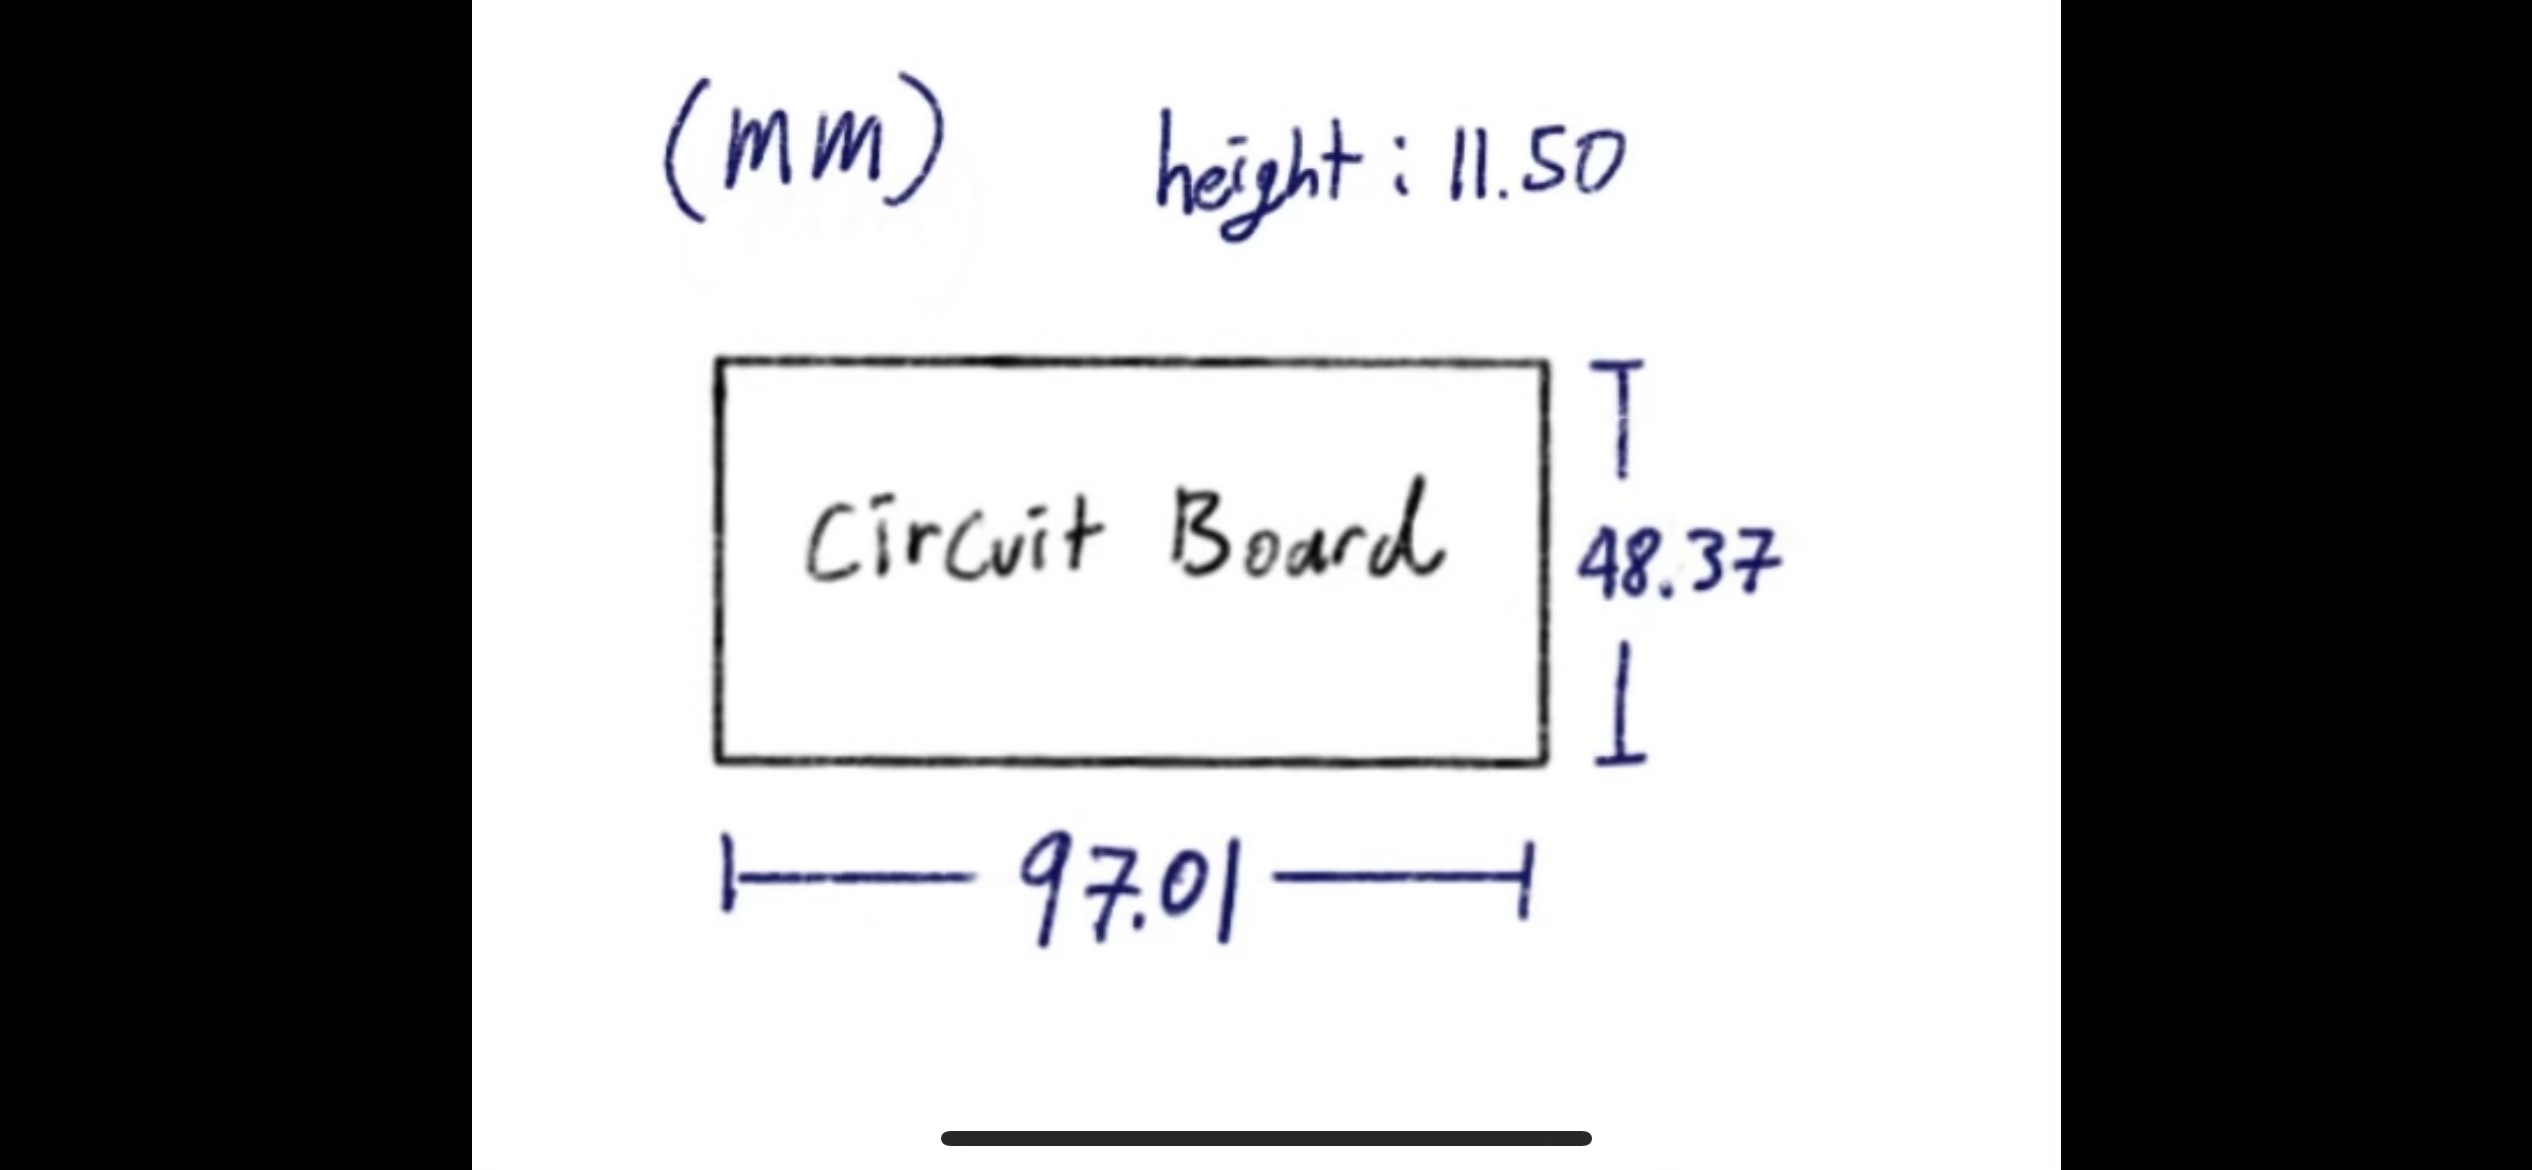 (mm) height : 11.50
Circuit Board
48.37
97.01